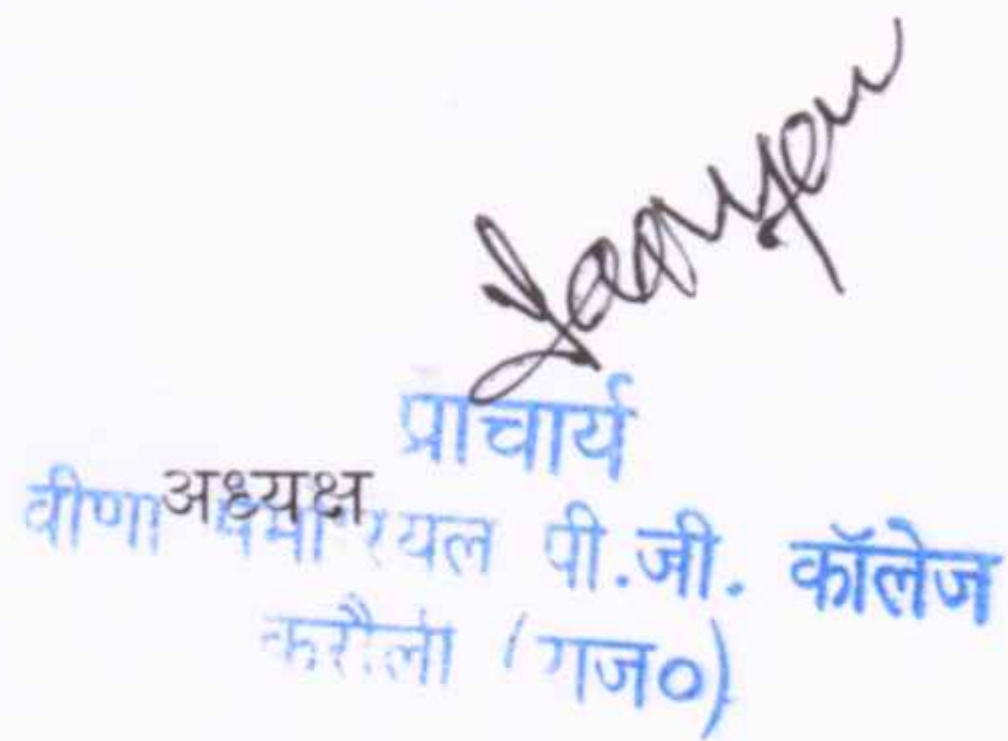 प्राचार्य
अध्यक्ष
वीणा मेमोरियल पी.जी. कॉलेज
करौली (राज०)